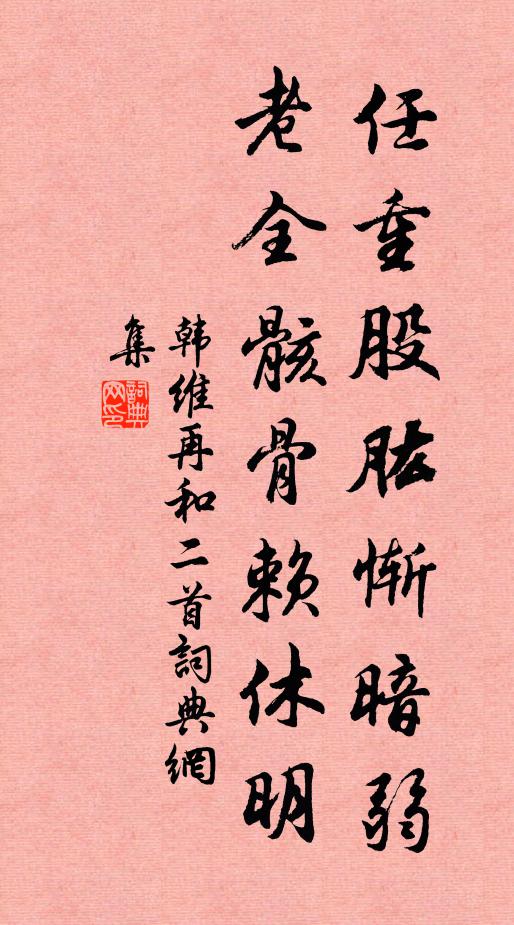 任重股肱惭暗弱
老全骸骨赖休明
韩维再和二首詞典網
集
詞典网印